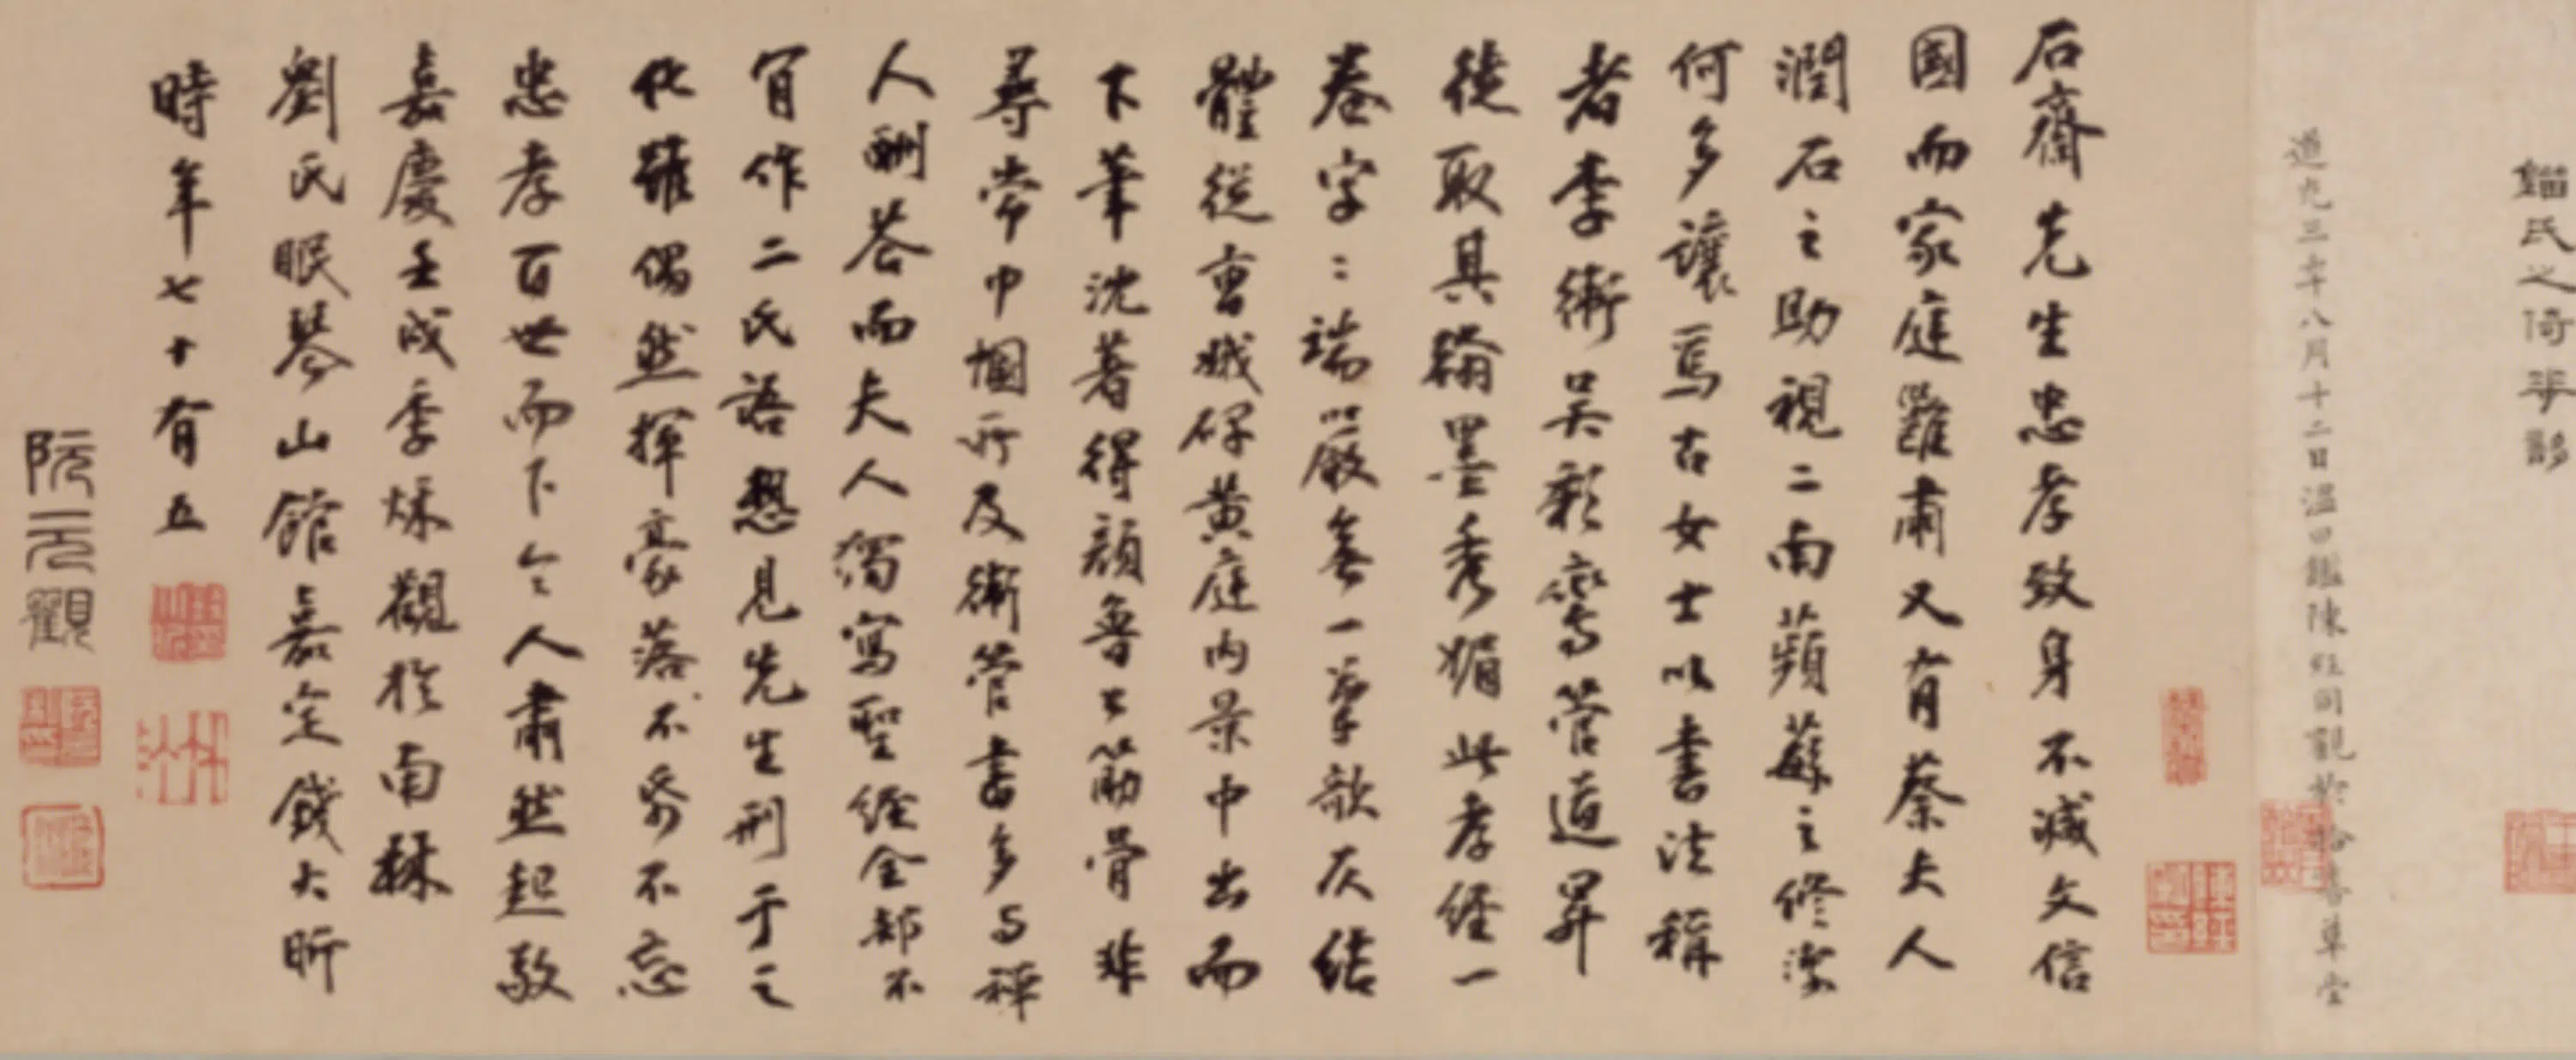 錙氏之倚平影
道光三年八月十二日溫日鑑陳經同觀於拾香草堂
石齋先生忠孝致身不減文信
國而家庭雝肅又有蔡夫人
潤石之助視二南蘋蘩之修潔
何多讓焉古女士以書法稱
者李衛吳彩鸞管道昇
徒取其翰墨秀媚此孝經一
卷字〻端嚴無一筆欹仄結
體從曹娥碑黃庭內景中出而
下筆沈著得顏魯公筋骨非
尋常巾幗所及衛管書多與釋
人酬答而夫人獨寫聖經全部不
肯作二氏語想見先生刑于之
化雖偶然揮豪落不苟不忘
忠孝百世而下令人肅然起敬
嘉慶壬戌季秌觀於南楙
劉氏眠琴山館嘉定錢大昕
時年七十有五
阮元觀